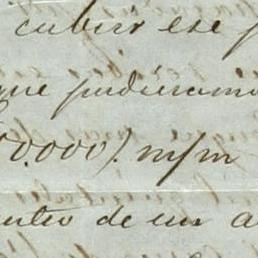 cubrir ese p
que pudieramo
00.000). m/m
entro de un a